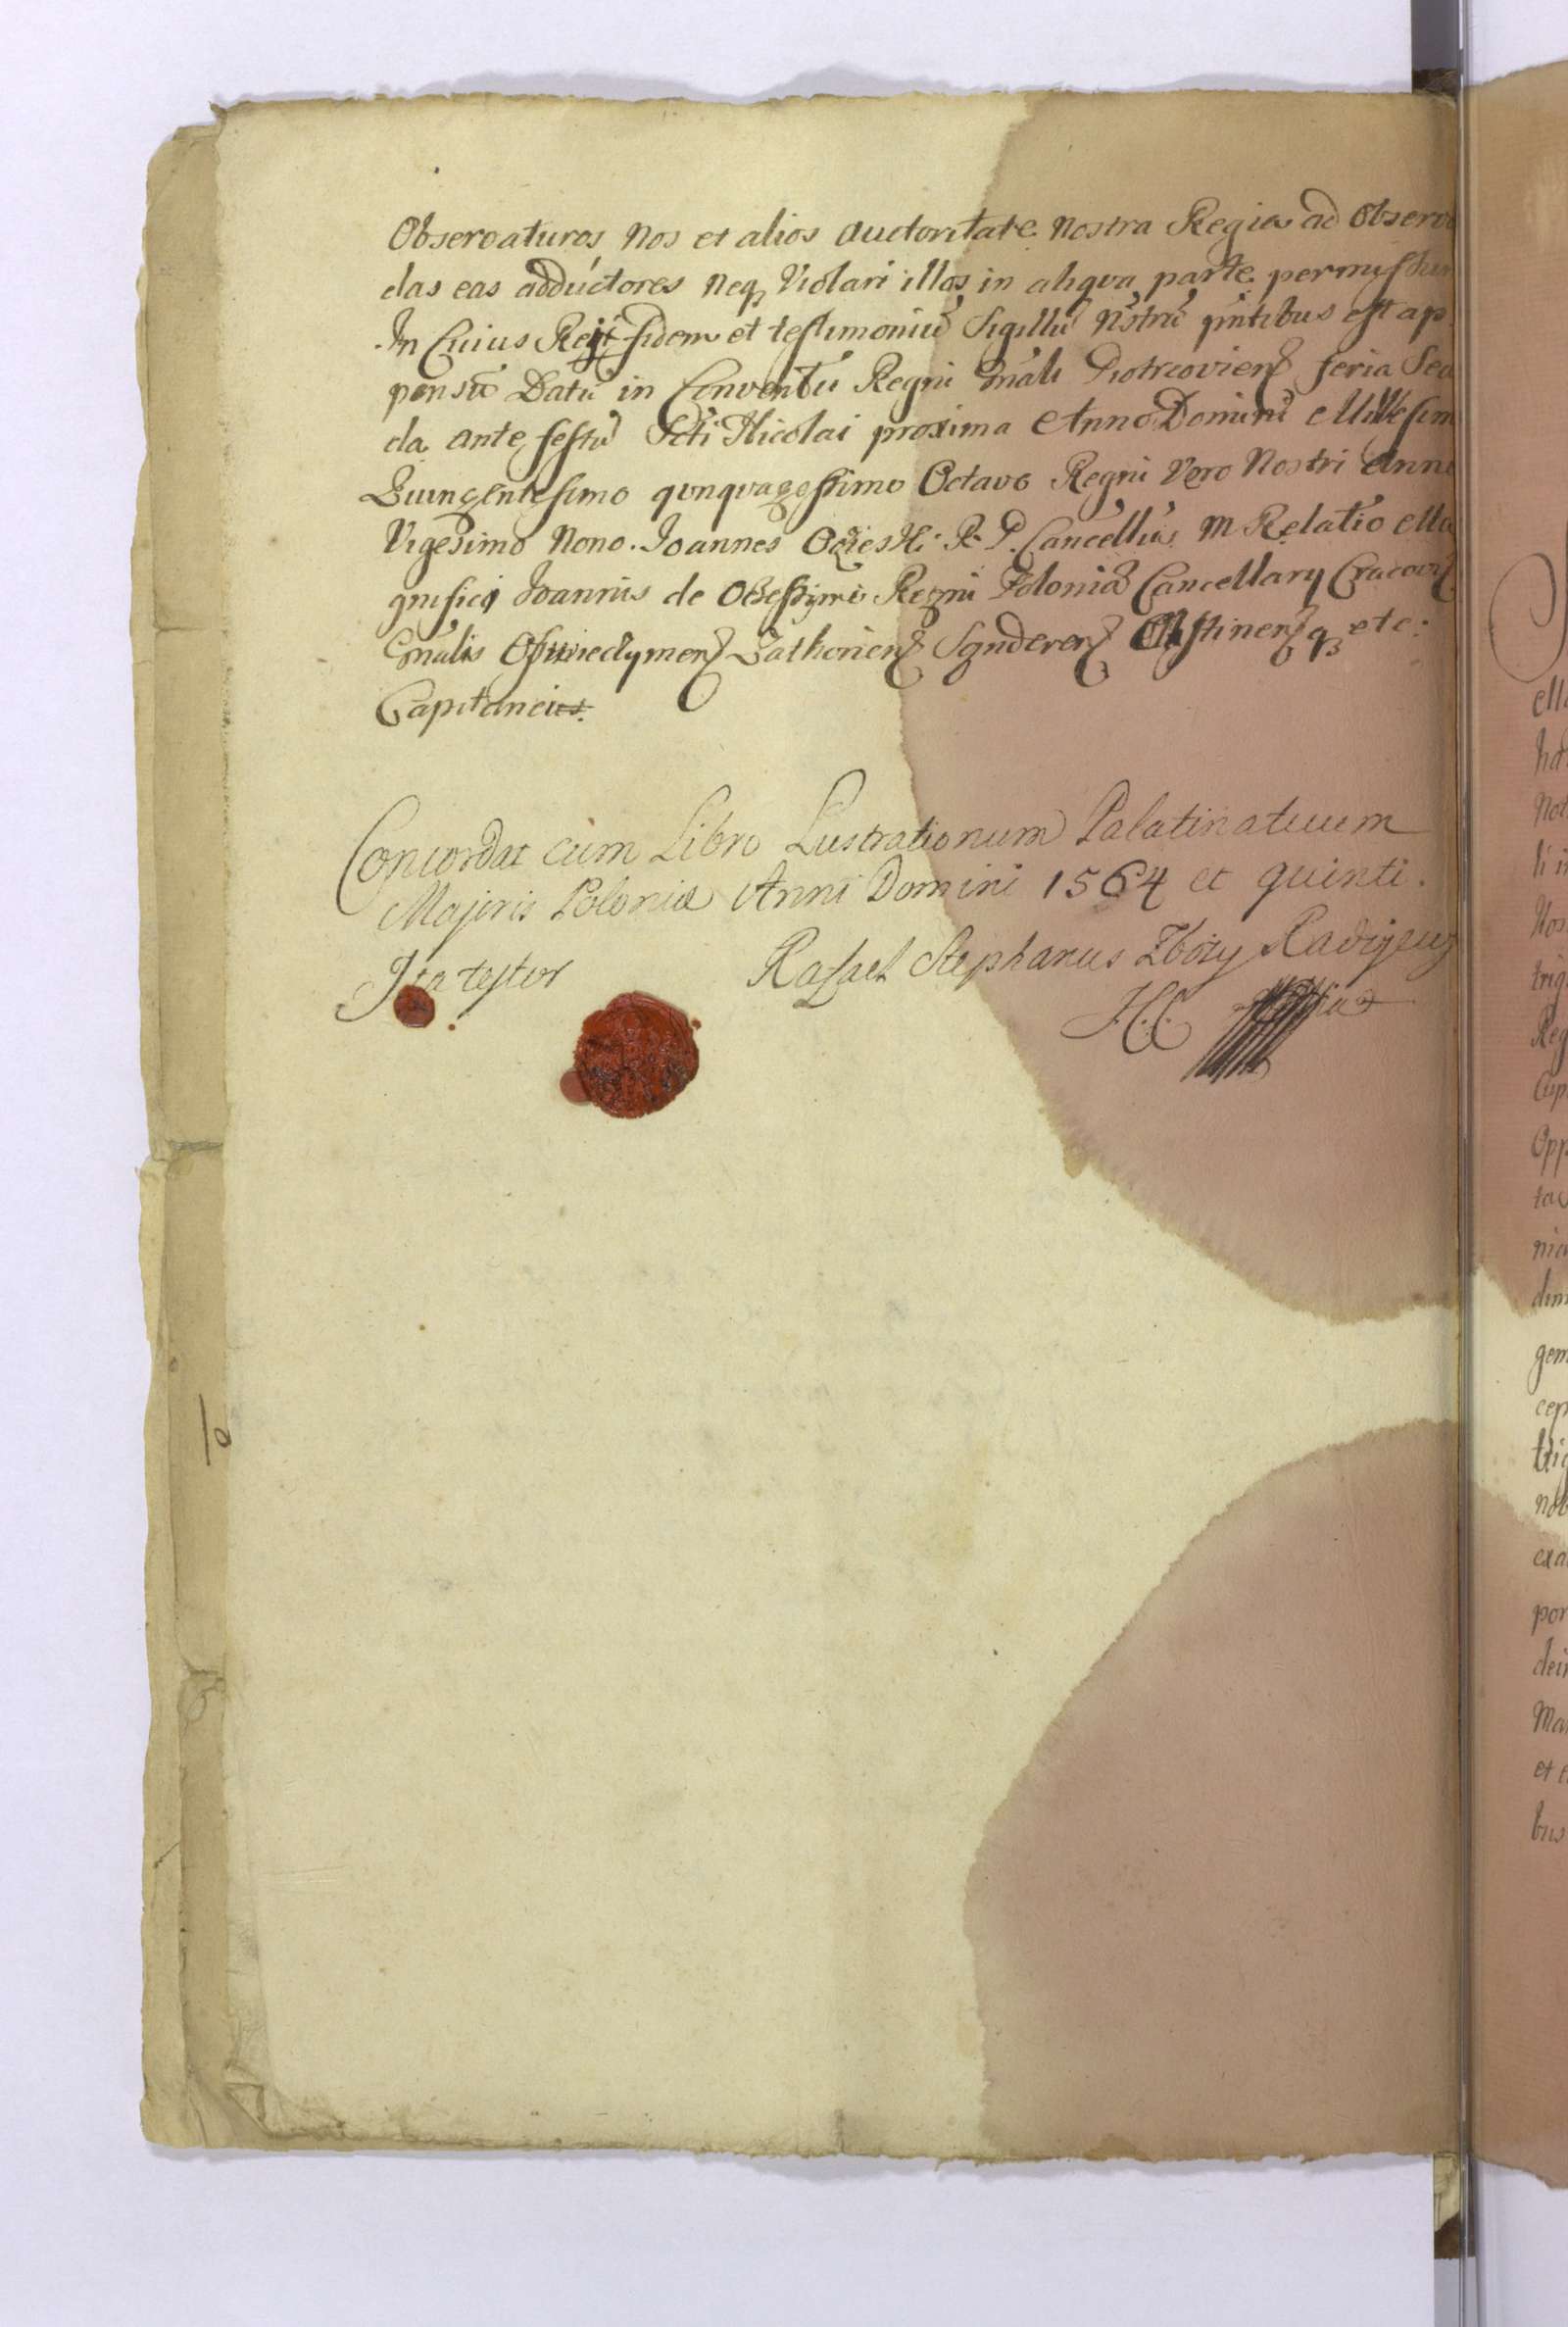 Observaturos Nos et alios auctoritate Nostra Regia ad Observ
das eas adductores neq Violari illas in aliqva parte permissur
In Cuius Rei fidem et testimoniū Sigillū Nostrū pntibus est ap
pensū Datū in Conventu Regni Gnali Piotrcovien feria Secu
da ante festū Scti Nicolai proxima Anno Domini Millesim
Quingentesimo qvnqvagessimo Octavo Regni Vero Nostri Anno
Vigesimo Nono. Joannes Oczieski R. P. Cancellius m Relatio Ma
gnifici Joannis de Oczessijno Regni Poloniæ Cancellary Cracovi
Gnalis Oswiecÿmen Zathorien Sanderen Olstinen q etc:
Capitanei
Concordat cum Libro Lustrationum Palatinatuum
Majoris Poloniæ Anni Domini 1564 et quinti.
Ita testor Rafael Stephanus
ella
ha
Not
li i
Nos
trig
Reg
Cap
Opp
tav
nia
dim
gem
cep
trig
nob
exa
por
dei
Ma
et e
bus